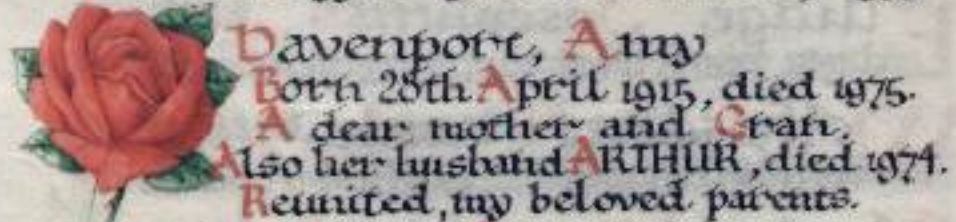 Davenport, Amy
Born 28th April 1915, died 1975.
A dear mother and Gran.
Also her husband ARTHUR, died 1974.
Reunited, my beloved parents.